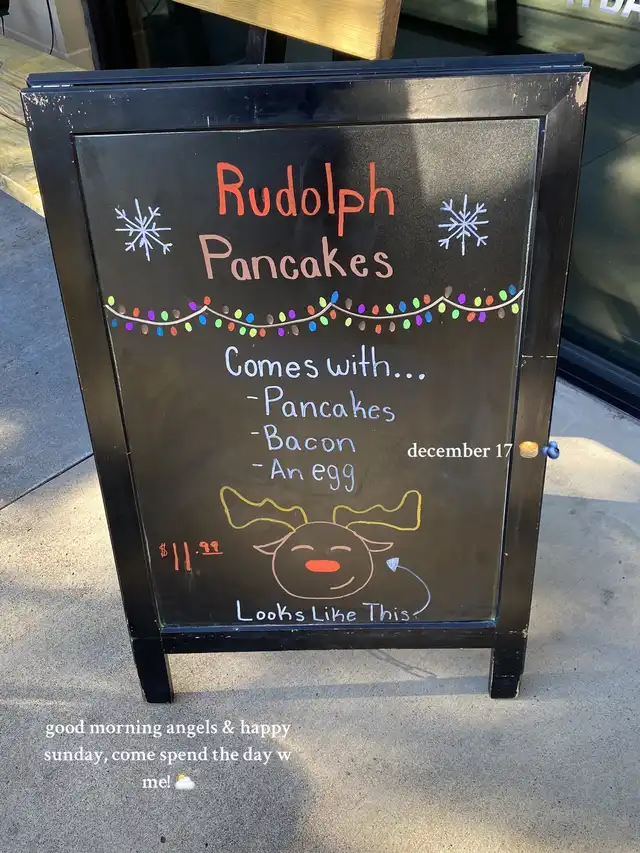 Rudolph
Pancakes
Comes with...
-Pancakes
-Bacon
december 17 🥞🫐
-An egg
$11.99
Looks Like This
good morning angels & happy
sunday, come spend the day w
me! 🌥️